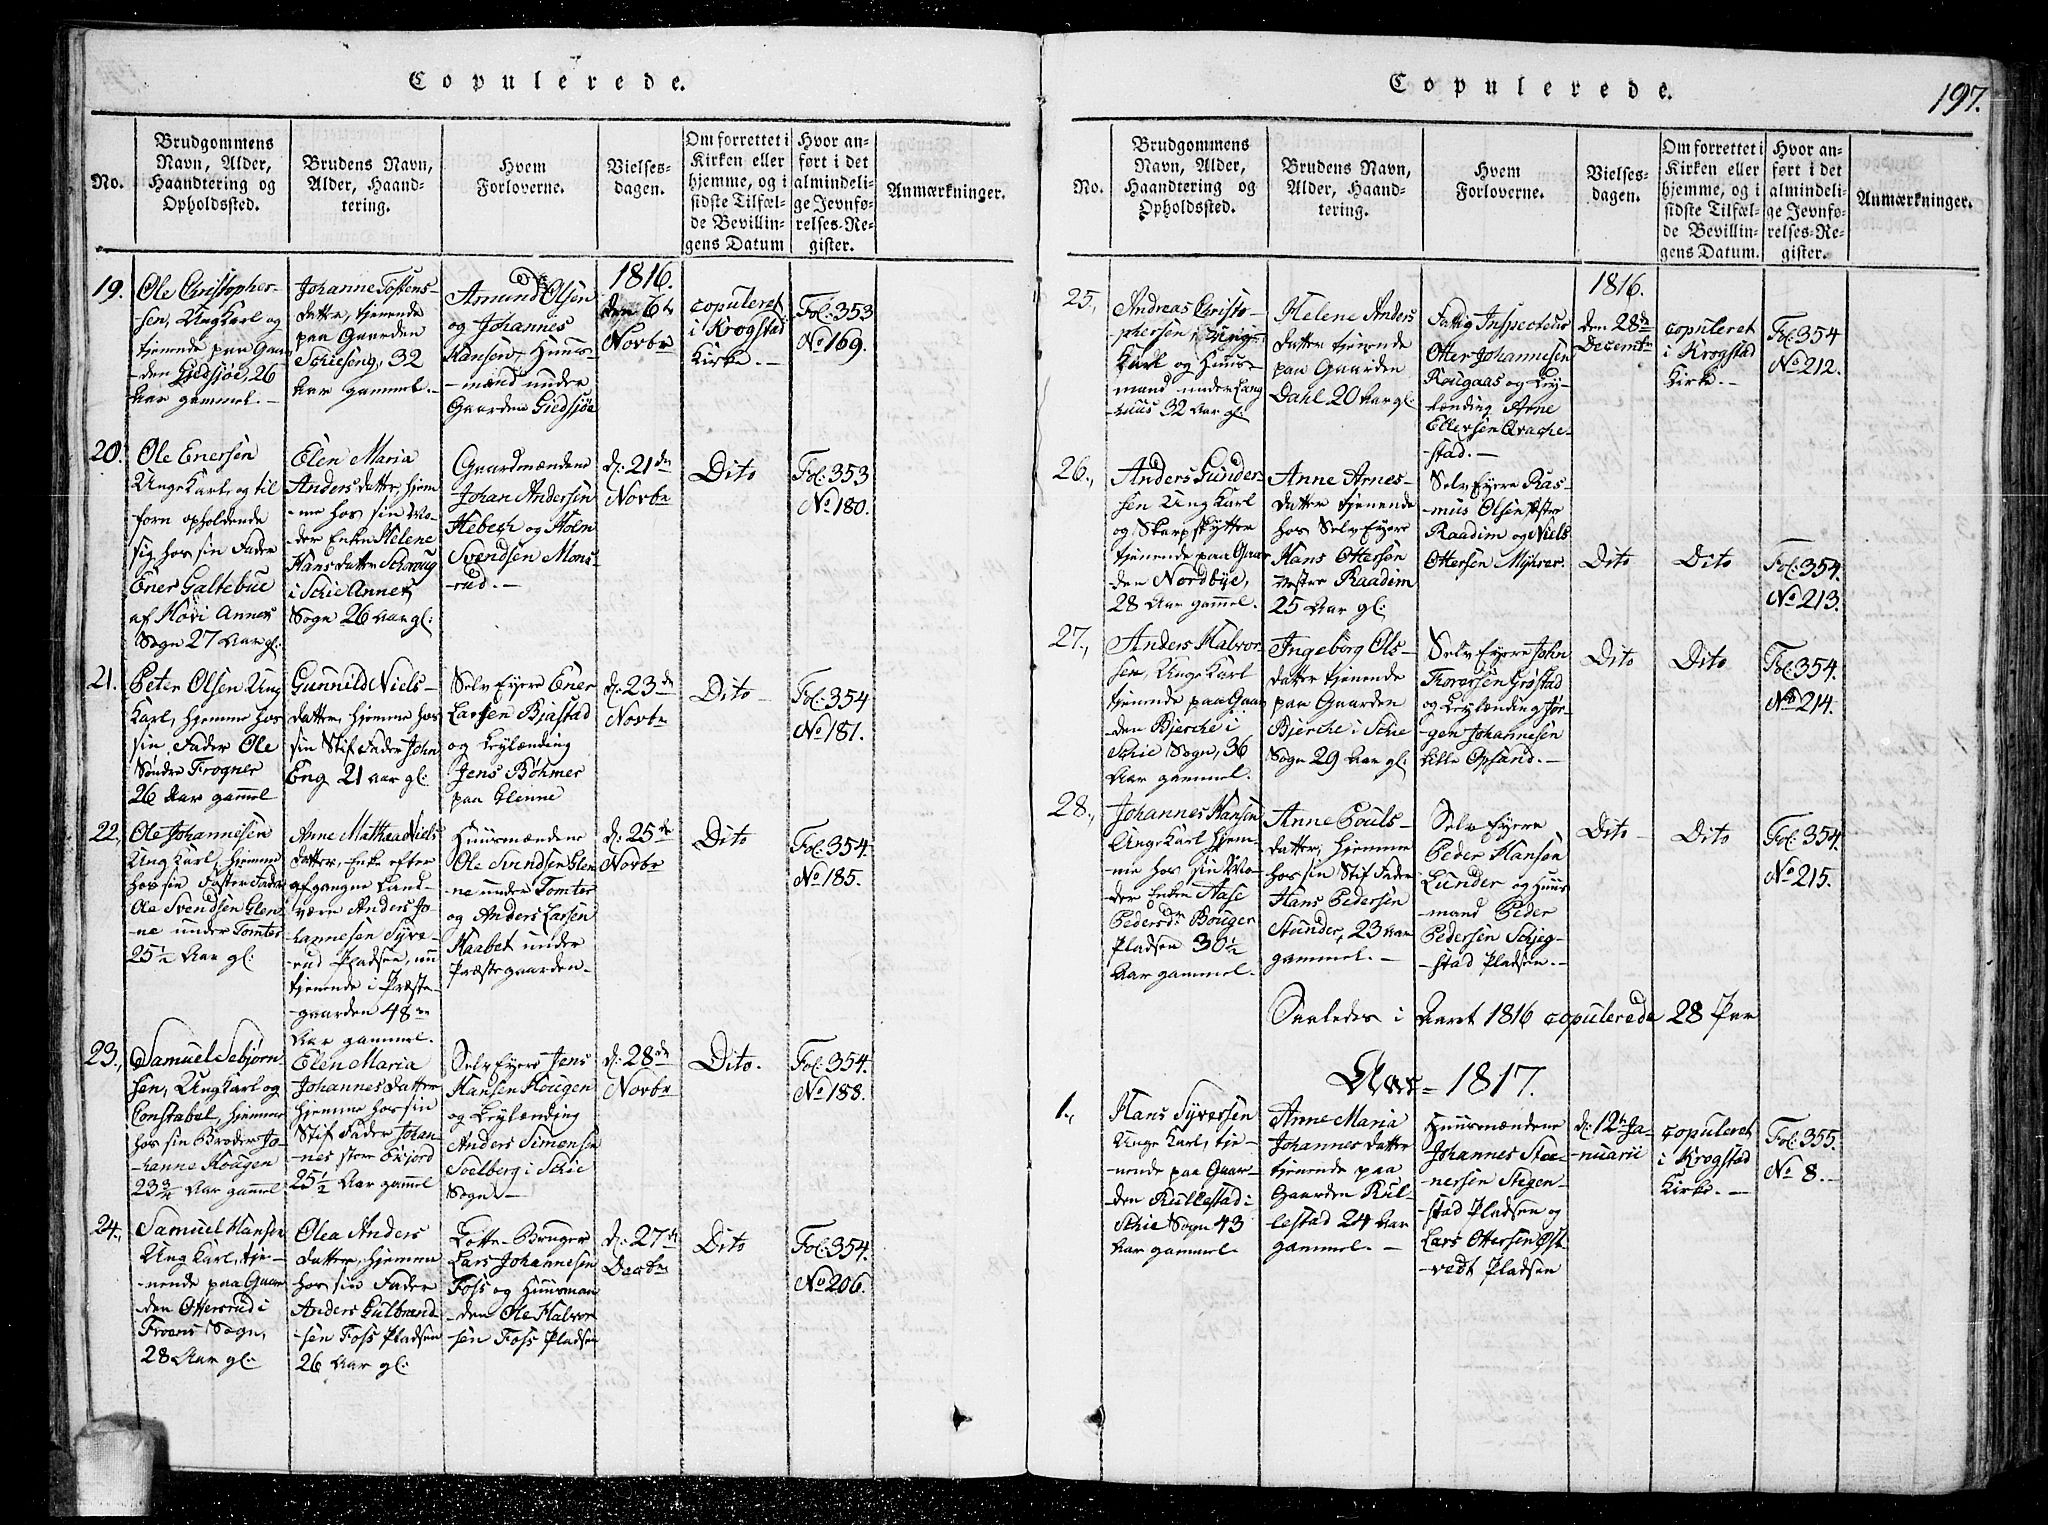 Copulerede.
No.
Brudgommens
Navn, Alder,
Haandtering og
Opholdssted.
Brudens Navn,
Alder, Haand-
tering.
Hvem
Forloverne.
Vielses-
dagen.
Om forrettet i
Kirken eller
hjemme, og i
sidste Tilfæl-
de Bevillin-
gens Datum
Hvor an-
ført i det
almindeli-
ge Jevnfø-
relses-Re-
gister.
Anmærkninger.
19.
Ole Christopher-
sen, Ung Karl og
tjenende paa Gaar
-den Giedsjøe, 26
Aar gammel.-
Johanne Tostens-
datter, tjenende
paa Gaarden
Schieseng, 32
Aar gammel.-
Amund Olsen
og Johannes
Hansen, Huus-
-mænd under
Gaarden Giedsjøe
1816.
den 6te
Novbr
copuleret
i Krogstad
Kirke.-
Fol: 353
No 169.
20.
Ole Enersen
Unge Karl, og til
forn opholdende
sig hos sin Fader
Ener Galtebue
af Hovi Annex
Sogn 27 Aar gl:
Elen Maria
Anders datter, hjem
-me hos sin Mo-
der Enken Helene
Hans datter Schroug
i Schie Annex
Sogn 26 Aar gl:
Gaardmændene
Johan Andersen
Hebech og Holm
Svendsen Mons-
rud.-
d: 21de
Novbr
Dito
Fol: 353
No 180.
21.
Peter Olsen Ung
Karl, hjemme hos
sin Fader Ole
Søndre Frogner
26 Aar gammel
Gunnild Niels-
datter, hjemme hos
sin Stif Fader John
Eng 21 Aar gl:
Selv Eyere Ener
Larsen Bjastad
og Leylænding
Jens Bøhmer
paa Glenne
d: 23de
Novbr
Dito -
Fol: 354
No 181.
22.
Ole Johannesen
Ung Karl, hjemme
hos sin Foster Fader
Ole Svendsen Glen
-ne under Tomter
25½ Aar gl:
Anne Mathea Niels
datter, Enke efter
afgangne Land-
værn Anders Jo-
hannesen Syve-
rud Pladsen, nu
tjenende i Præste-
gaarden 48
Aar gammel.
Huusmændene
Ole Svendsen Glen
-ne under Tomter
og Anders Larsen
Haabet under
Præstegaarden.-
d: 25de
Novbr
Dito
Fol: 354.
No 185.
23.
Samuel Sebjørn
sen, Ung Karl og
Constabel, hjemme
hos sin Broder Jo-
hanne Hougen
23¾ Aar gammel
Elen Maria
Johannes datter
hjemme hos sin
Stif Fader Johan-
nes store
25½ Aar gammel
Selv Eyere Jens
Hansen Hougen
og Leylænding
Anders Simensen
Solberg i Schie
Sogn.-
d: 28de
Novbr
Dito.
Fol: 354.
No 188.
24.
Samuel Hansen
Ung Karl, tje-
-nende paa Gaar
den Ottersrud i
Froens Sogn,
28 Aar gl:
Olea Anders
datter, hjemme
hos sin Fader
Anders Gulbrand
-sen Foss Pladsen
26 Aar gl:
Lotte-Bruger
Lars Johannesen
Foss og Huusman
-den Ole Halvor
-sen Foss Pladsen
d: 27de
Decbr
Dito
Fol: 354.
No 206.
Copulerede.
197.
No.
Brudgommens
Navn, Alder,
Haandtering og
Opholdssted.
Brudens Navn,
Alder, Haand-
tering.
Hvem
Forloverne.
Vielses-
dagen.
Om forrettet i
Kirken eller
hjemme, og i
sidste Tilfæl-
de Bevillin-
gens Datum.
Hvor an-
ført i det
almindeli-
ge Jevnfø-
relses-Re-
gister.
Anmærkninger.
25.
Andreas Christo-
phersen, Unge
Karl og Huus-
mand under Lang
huus 32 Aar gl:
Helene Anders
datter tjenende
paa Gaarden
Dahl 20 Aar gl:
Fattig Inspecteur
Otter Johannesen
Rougaas og Ley-
lænding Arne
Ellevsen Qvache-
-stad.-
1816.
den 28de
Decembr
copuleret
i Krogstad
Kirke.-
Fol: 354
No 212.
26.
Anders Gunder-
sen Ung Karl
og Skarpskytter
tjenende paa Gaar
den Nordbye,
28 Aar gammel.
Anne Arnes-
datter tjenende
hos Selv Eyere
Hans Ottersen
vestre Raadim
25 Aar gl:
Selv Eyere Ras-
mus Olsen Østre
Raadim og Niels
Ottersen Myhrer.
Dito
Dito
Fol: 354.
No 213.
27.
Anders Halvor
sen, Unge Karl
tjenende paa Gaar
den Bjerche i
Schie Sogn, 36
Aar gammel.
Ingeborg Ols-
datter tjenende
paa Gaarden
Bjerche i Schie
Sogn 29 Aar gl:
Selv Eyere John
Thoresen Grøstad
og Leylænding Jør-
gen Johannesen
Lille Opsand.-
Dito
Dito
Fol: 354.
No 214.
28.
Johannes Hansen
Unge Karl hjem-
me hos sin Mo-
der Enken Aase
Pedersdr Bouger
Pladsen 30½
Aar gammel.
Anne Pouls-
datter, hjemme
hos sin Stif Fader
Hans Pedersen
Stunder, 23 Aar
gammel.-
Selv Eyere
Peder Hansen
Lunder og Huus
mand Peder
Pedersen Schjeg-
-stad Pladsen.-
Dito
Dito
Fol: 354.
No 215.
Saaledes i Aaret 1816 copulerede 28 Par
Aar - 1817.
1.
Hans Syversen
Unge Karl, tje-
-nende paa Gaar-
den Kullestad i
Schie Sogn 43
Aar gammel.
Anne Maria
Johannes datter
tjenende paa
Gaarden Kul-
lestad 24 Aar
gammel.-
Huusmændene
Johannes Ste-
nersen Stegen-
stad Pladsen og
Lars Ottersen Øst-
-vedt Pladsen
d: 12te Ja-
-nuarii
copuleret
i Krogstad
Kirke.-
Fol: 355.
No 8.-